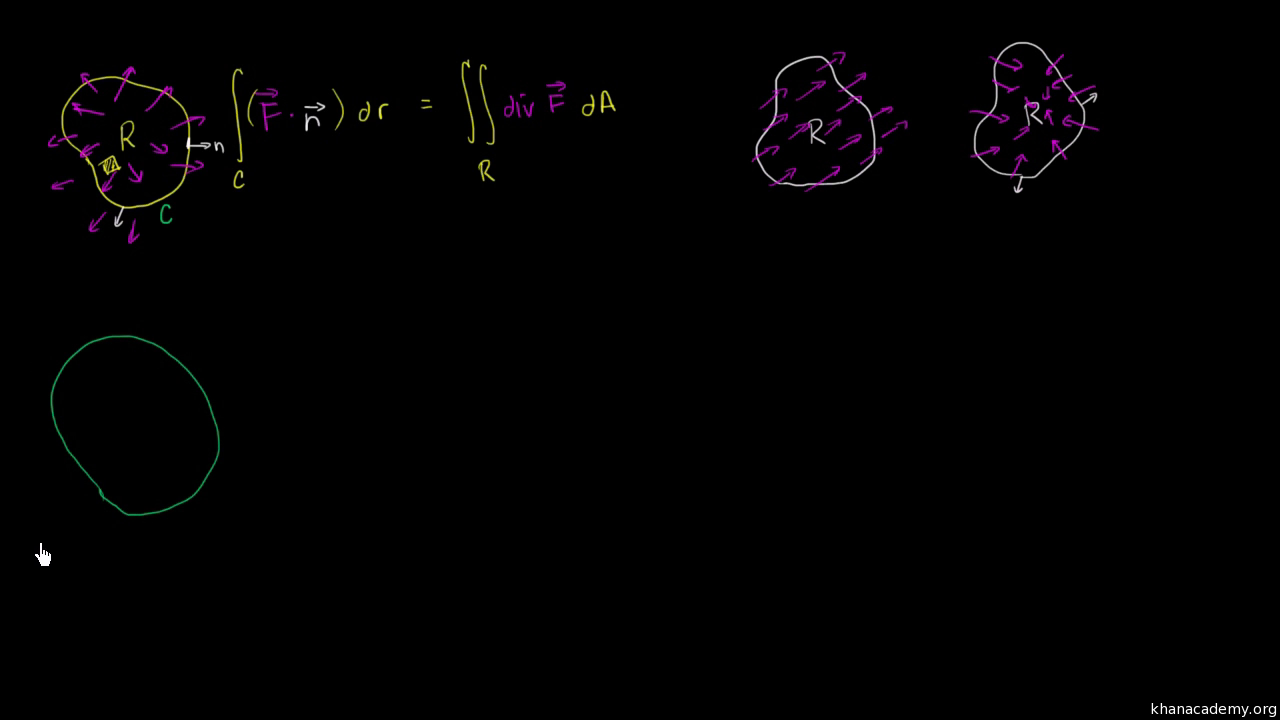 R
n
C
∫ (F⃗ · n⃗) dr = ∬ div F⃗ dA
C R
R
R
khanacademy.org